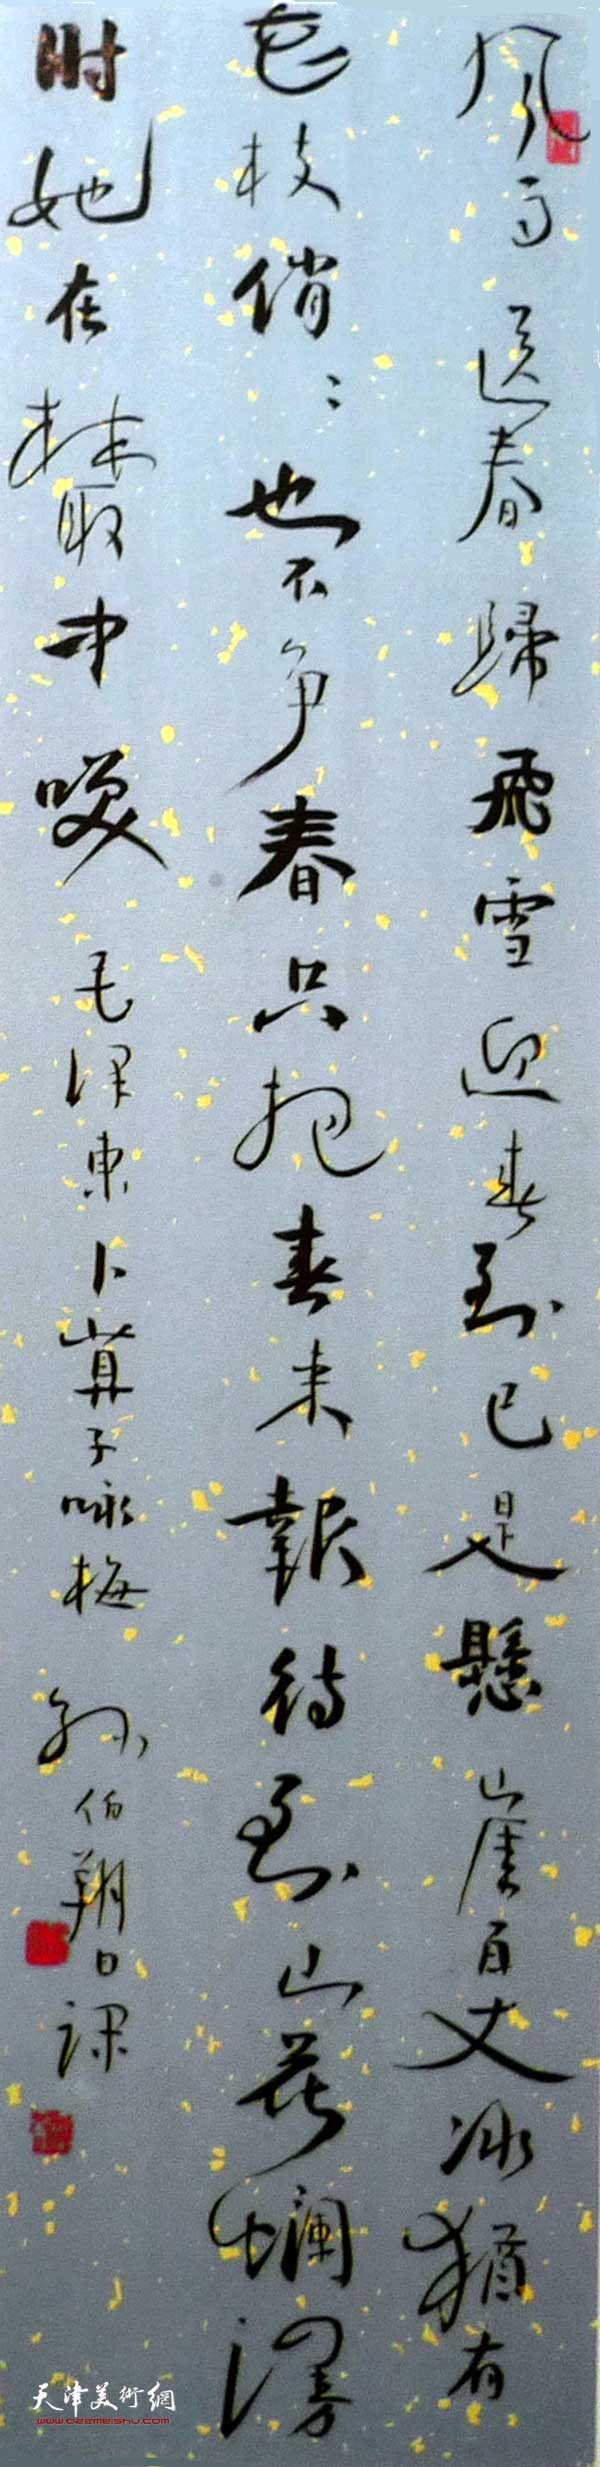 风雨送春歸飛雪迎春到已是懸崖百丈冰猶有
花枝俏俏也不争春只把春来報待到山花爛漫
时她在叢中笑 毛泽東卜算子咏梅 孙伯翔日课
天津美術網
www.022meishu.com